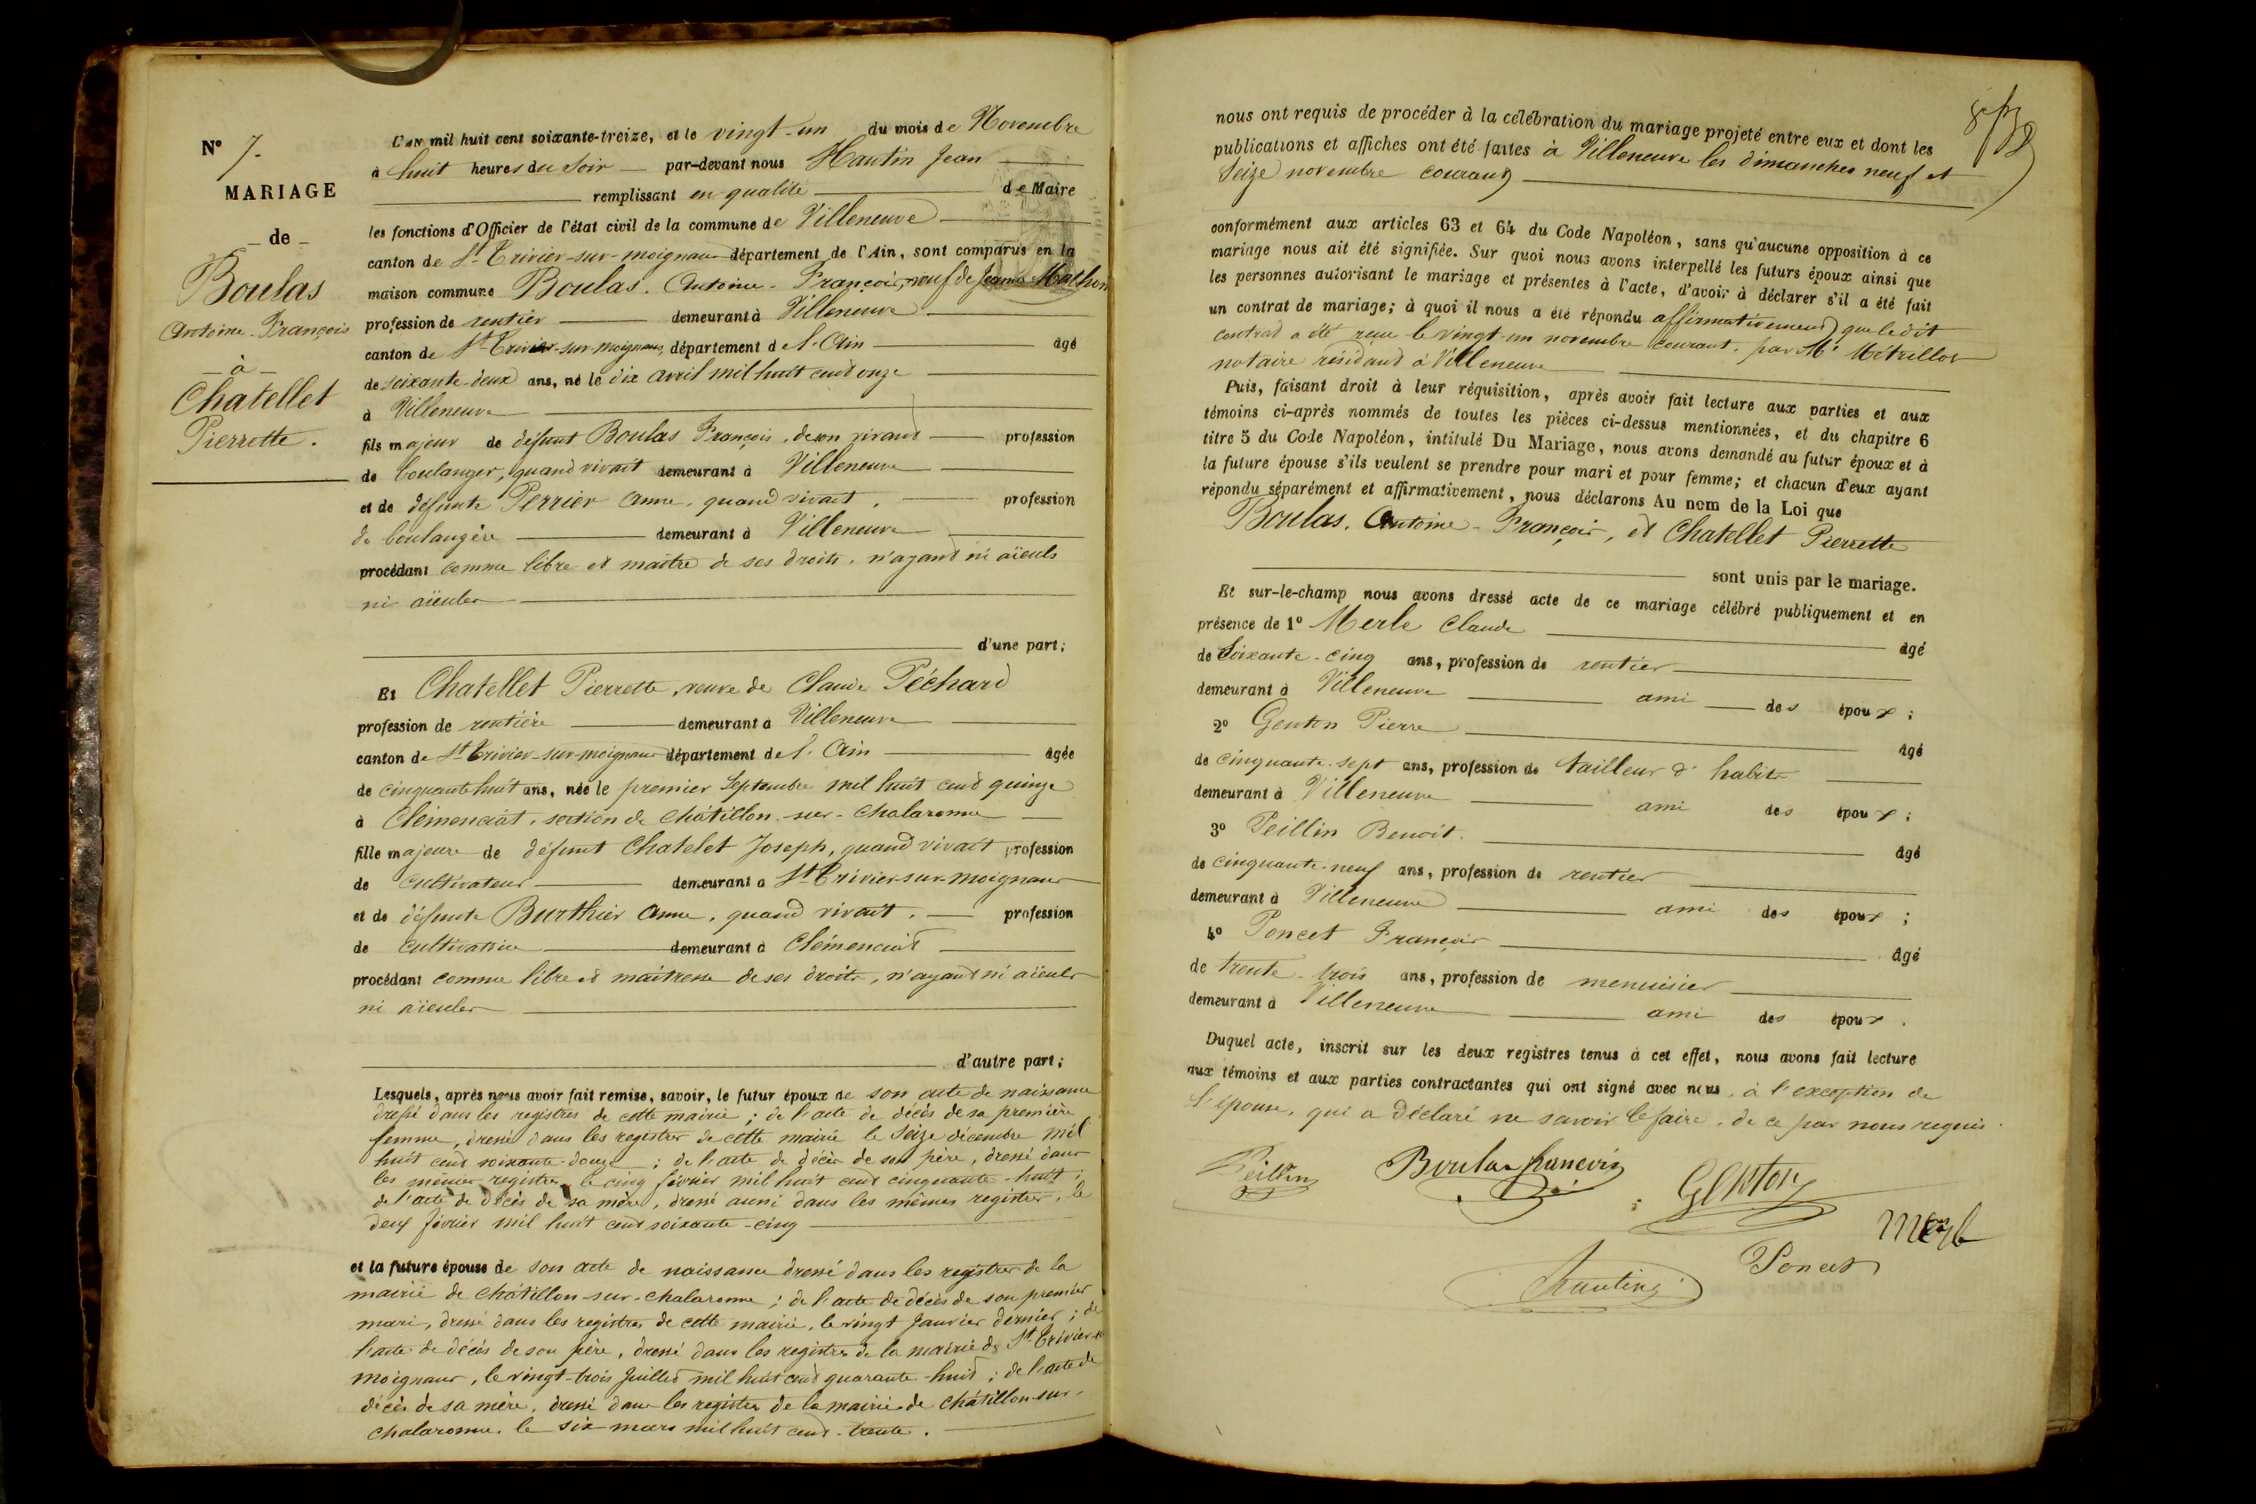 N° 7.
MARIAGE
de
Boulas
Antoine-François
à
Chatellet
Pierrette.
L'an mil huit cent soixante-treize, et le vingt-un du mois de Novembre
à huit heures du soir par-devant nous Hautin Jean
remplissant en qualité de Maire
les fonctions d'Officier de l'état civil de la commune de Villeneuve
canton de St Trivier-sur-moignans département de l'Ain, sont comparus en la
maison commune Boulas. Antoine-François, veuf de Jeanne Mathon
profession de rentier demeurant à Villeneuve
canton de St Trivier-sur-moignans, département de l'Ain âgé
de soixante-deux ans, né le dix avril mil huit cent onze
à Villeneuve
fils majeur de défunt Boulas François, de son vivant profession
de boulanger, quand vivait demeurant à Villeneuve
et de défunte Perrier Anne, quand vivait, profession
de boulangère demeurant à Villeneuve
procédant comme libre et maître de ses droits, n'ayant ni aïeuls
ni aïeules
d'une part;
Et Chatellet Pierrette, veuve de Claude Péchard
profession de rentière demeurant à Villeneuve
canton de St Trivier-sur-moignans département de l'Ain âgée
de cinquante huit ans, née le premier Septembre mil huit cent quinze
à Clémenciat, section de Châtillon-sur-Chalaronne
fille majeure de défunt Chatelet Joseph, quand vivait profession
de cultivateur demeurant à St Trivier-sur-moignans
et de défunte Burthier Anne, quand vivait, profession
de cultivatrice demeurant à Clémenciat
procédant comme libre et maitresse de ses droits, n'ayant ni aïeuls
ni aïeules
d'autre part;
Lesquels, après nous avoir fait remise, savoir, le futur époux de son acte de naissance
dressé dans les registres de cette mairie; de l'acte de décès de sa première
femme, dressé dans les registres de cette mairie le seize décembre mil
huit cent soixante-douze; de l'acte de décès de son père, dressé dans
les mêmes registres le cinq février mil huit cent cinquante-huit;
de l'acte de décès de sa mère, dressé aussi dans les mêmes registres, le
deux février mil huit cent soixante-cinq
et la future épouse de son acte de naissance dressé dans les registres de la
mairie de Châtillon-sur-chalaronne; de l'acte de décès de son premier
mari, dressé dans les registres de cette mairie, le vingt Janvier dernier; de
l'acte de décès de son père, dressé dans les registres de la mairie de St Trivier-s-
moignans, le vingt-trois Juillet mil huit cent quarante-huit; de l'acte de
décès de sa mère, dressé dans les registres de la mairie de Châtillon-sur-
chalaronne, le six mars mil huit cent trente.
nous ont requis de procéder à la célébration du mariage projeté entre eux et dont les
publications et affiches ont été faites à Villeneuve les dimanches neuf et
Seize novembre courant
conformément aux articles 63 et 64 du Code Napoléon, sans qu'aucune opposition à ce
mariage nous ait été signifiée. Sur quoi nous avons interpellé les futurs époux ainsi que
les personnes autorisant le mariage et présentes à l'acte, d'avoir à déclarer s'il a été fait
un contrat de mariage; à quoi il nous a été répondu affirmativement que le dit
contrat a été reçu le vingt-un novembre courant, par Me Métrillot
notaire résidant à Villeneuve
Puis, faisant droit à leur réquisition, après avoir fait lecture aux parties et aux
témoins ci-après nommés de toutes les pièces ci-dessus mentionnées, et du chapitre 6
titre 5 du Code Napoléon, intitulé Du Mariage, nous avons demandé au futur époux et à
la future épouse s'ils veulent se prendre pour mari et pour femme; et chacun d'eux ayant
répondu séparément et affirmativement, nous déclarons Au nom de la Loi que
Boulas. Antoine-François, et Chatellet Pierrette
sont unis par le mariage.
Et sur-le-champ nous avons dressé acte de ce mariage célébré publiquement et en
présence de 1° Merle Claude âgé
de Soixante-cinq ans, profession de rentier
demeurant à Villeneuve ami des époux;
2° Genton Pierre âgé
de cinquante-sept ans, profession de tailleur d'habits
demeurant à Villeneuve ami des époux;
3° Peillin Benoit. âgé
de cinquante-neuf ans, profession de rentier
demeurant à Villeneuve ami des époux;
4° Poncet François âgé
de trente-trois ans, profession de menuisier
demeurant à Villeneuve ami des époux.
Duquel acte, inscrit sur les deux registres tenus à cet effet, nous avons fait lecture
aux témoins et aux parties contractantes qui ont signé avec nous, à l'exception de
l'épouse, qui a déclaré ne savoir le faire, de ce par nous requis.
Peillin Boulas francois Genton
Merle
Poncet
Hautin